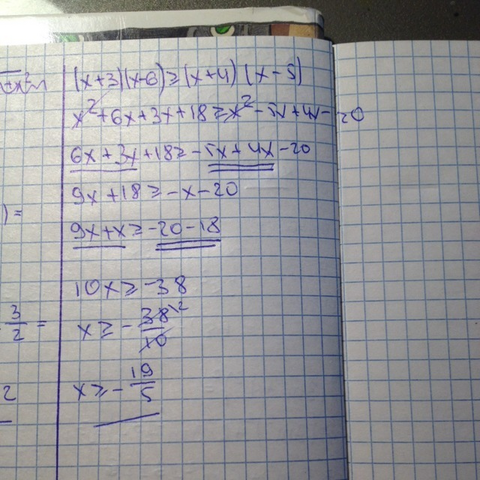 (x+3)(x-6)≥(x+4)(x-5)
x²+6x+3x+18≥x²-5x+4x-20
6x+3x+18≥-5x+4x-20
9x+18≥-x-20
) =
9x+x≥-20-18
10x≥-38
3/2 =
x≥-38/10
2
x≥-19/5